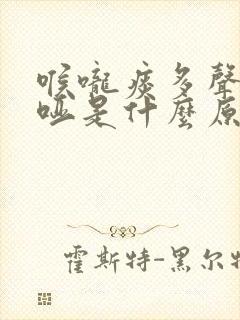 喉嚨痰多聲
啞是什麼原
霍斯特-黑尔特